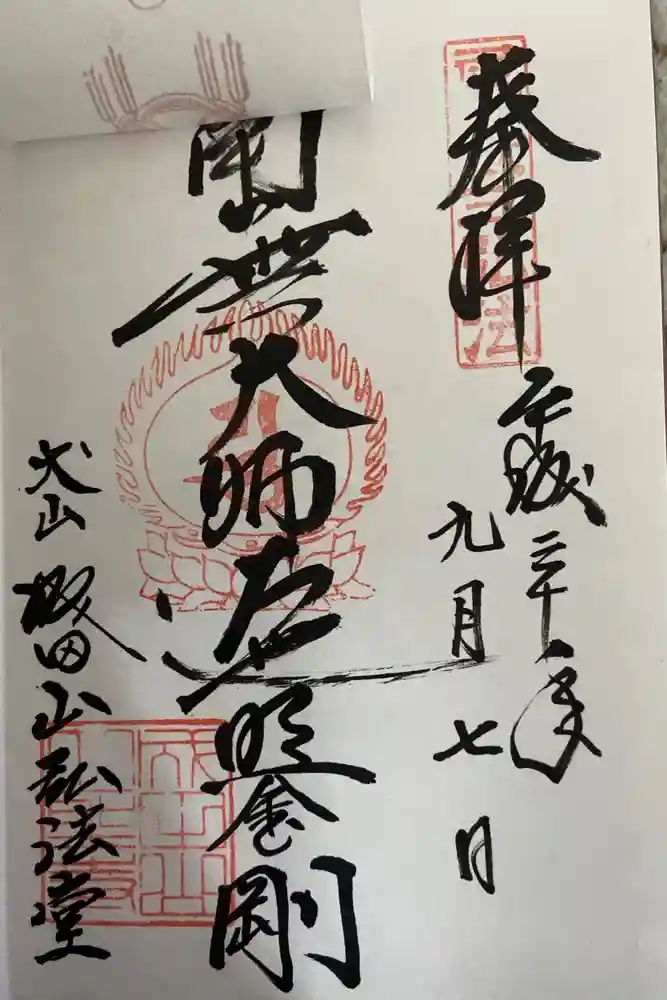 奉拝
平成二十八年
九月七日
南無大師遍照金剛
犬山 成田山弘法堂